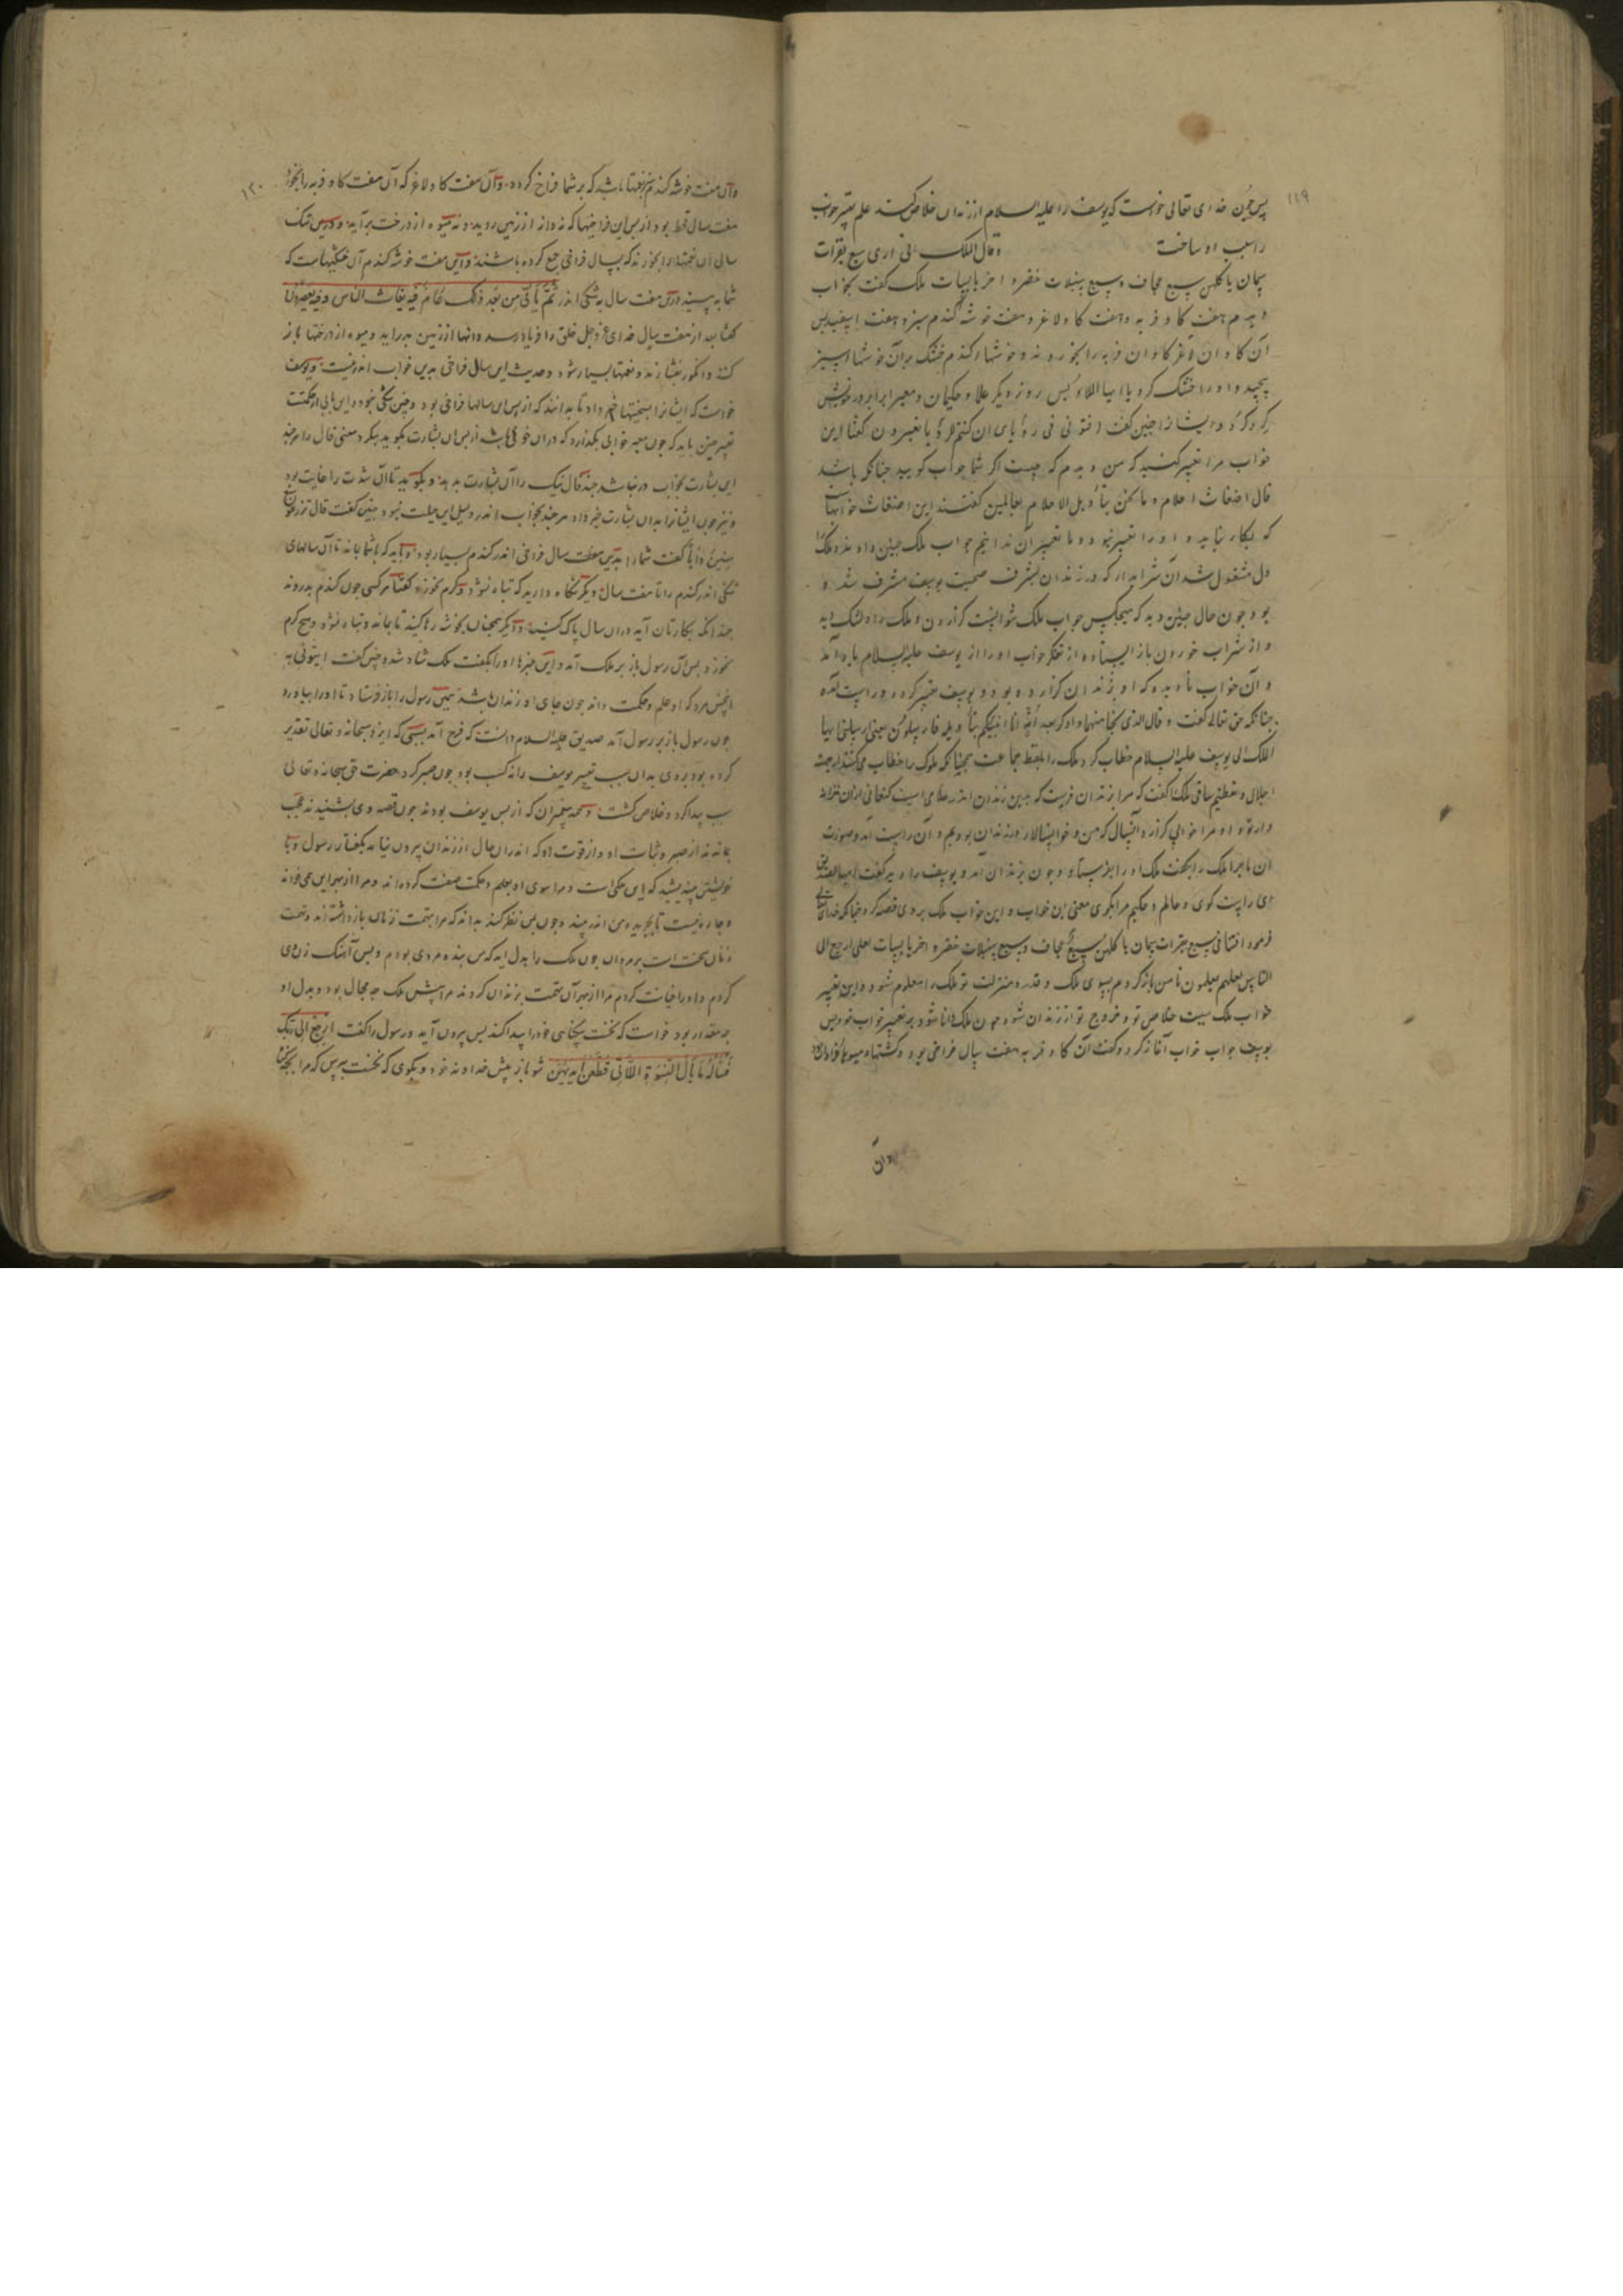 ۱۱۹
پس چون خدای تعالی خواست که یوسف را علیه السلام از زندان خلاص کند علم تعبیر خواب
را سبب او ساخت وقال الملک انی اری سبع بقرات
سمان یاکلهن سبع عجاف وسبع سنبلات خضر واخر یابسات ملک گفت بخواب
دیدم هفت کاو فربه وهفت کاو لاغر وهفت خوشه کندم سبز وهفت
آن کاوان لاغر کاوان فربه را بخوردند وخوشهاء کندم خشک بران خوشهاء سبز
پیچید واورا خشک کرد یا ایها الملاء پس روز دیکر علما وحکیمان ومعبرانرا بر در خویش
کرد کرد وایشانرا چنین گفت افتونی فی رؤیای ان کنتم للرؤیا تعبرون گفتا این
خواب مرا تعبیر کنید که من دیدم که چیست اگر شما جواب کویید چنانکه باشد
قال اضغاث احلام وما نحن بتأویل الاحلام بعالمین گفتند این اضغاث خوابهاست
که بکار نیاید و اورا تعبیر نبود وما تعبیر آن ندانیم جواب ملک چنین دادند وملک را
دل مشغول شد آن شرابدار که در زندان بشرف صحبت یوسف مشرف شده
بود چون حال چنین دید که هیچکس جواب ملک نتوانست کزاردن وملک
واز شراب خوردن باز ایستاده از تفکر خواب اورا از یوسف علیه السلام یاد آمد
و آن خواب نادیده که او بزندان کزارده بود و یوسف تعبیر کرده وراست آمده
چنانکه حق تعالی گفت وقال الذی نجا منهما وادکر بعد امة انا انبئکم بتأویله فارسلون یعنی ارسلنی ایها
الملک الی یوسف علیه السلام خطاب کرد ملک را بلفظ جماعت همچنانکه ملوک را خطاب میکنند از جهت
اجلال وتعظیم ساقی ملک را گفت که مرا بزندان فرست که بدین زندان اندر غلامی است کنعانی
و او مرا خوابی کزارد آنسال که من و خوانسالار در زندان بودیم و آن راست آمد وصورت
آن ماجرا ملک را بگفت ملک او را بفرستاد وچون بزندان آمد و یوسف را دید گفت ایها الصدیق
ای راست کوی و عالم و حکیم مرا بگوی معنی این خواب و این خواب ملک بر وی قصه کرد چنانکه خدای تعالی
فرمود افتنا فی سبع بقرات سمان یاکلهن سبع عجاف وسبع سنبلات خضر واخر یابسات لعلی ارجع الی
الناس لعلهم یعلمون تا من باز کردم بسوی ملک وقدر ومنزلت تو ملک را معلوم شود واین تعبیر
خواب ملک سبب خلاص تو وخروج تو از زندان شود چون ملک دانا شود بر تعبیر خواب خود پس
یوسف جواب خواب آغاز کرد وگفت آن کاو فربه هفت سال فراخی بود وکشتها ومیوها فراوان
وان
۱۲۰
وآن هفت خوشه کندم سبز نعمتها باشد که بر شما فراخ کرده وآن هفت کاو لاغر که آن هفت کاو فربه را بخورد
هفت سال قحط بود از پس این فراخیها که نه دانه از زمین روید ونه میوه از درخت برآید ودرین تنک
سالی آن نعمتها را بخورند که بسال فراخی جمع کرده باشند واین هفت خوشه کندم آن خشکیهاست که
شما به بینید درین هفت سال به تنکی اندر ثُمَّ یَأتی مِن بَعدِ ذلک عَامٌ فیه یغاث الناس وفیه یعصرون
گفتا بعد از هفت سال خدای عز وجل خلق را فریاد رسد ودانها از زمین بدر آید ومیوه از درختها باز
کنند وانکور بفشارند ونعمتها بسیار شود وحدیث این سال فراخی بدین خواب اندر نیست ویوسف
خواست که ایشانرا بسختیها خبر داد تا بدانند که از پس این سالها فراخی بود وچنین تنکی نبود واین بابی از حکمت
تعبیر چنین باید که چون معبر خوابی بگذارد که در آن خوفی باشد از پس آن بشارت بگوید
این بشارت بخواب در نباشد چندفال نیک را آن بشارت بدهد وبگوید تا آن شدت را غایت بود
ونیز چون ایشانرا بدان بشارت خبر داد هرچند بخواب اندر دلیل این میلت نبود چنین گفت قال تزرعون سبع
سنین دَأباً گفت شمارا بدین هفت سال فراخی اندر کندم بسیار بود وباید که باشما بماند تا آن سالهای
تنکی اندر کندم را تا هفت سال دیکر نکاه دارید که تباه نشود وکرم نخورد گفتا هر کسی چون کندم بدروند
چندانکه بکارتان آید در آن سال پاک کنید ودیکر همچنان بخوشه رها کنید تا بماند وتباه نشود وهیچ کرم
نخورد پس آن رسول باز بر ملک آمد واین خبرها اورا بگفت ملک شاد شد وچنین گفت ایتونی به
اینچنین مرد که او علم وحکمت داند چون جای او زندان باشد همین رسول را باز فرستاد تا اورا بیاورد
چون رسول باز بر رسول آمد صدیق علیه السلام دانست که فرج آمد بسببی که ایزد سبحانه وتعالی تقدیر
کرده بود بروی بدان سبب تعبیر یوسف را نه کسب بود چون صبر کرد حضرت حق سبحانه وتعالی
سبب پیدا کرد وخلاص کشت وهمه پیغمبران که از پس یوسف بودند چون قصه وی بشنیدند عجب
بماندند از صبر وثبات او واز قوت او که اندران حال از زندان بیرون نیامد بگفتار رسول وبا
خویشتن بیندیشید که این ملک است ومرا سوی او بعلم وحکمت صفت کرده اند ومرا از بهر این می خواند
وچاره نیست تا بچه دیده من اندر بیند وچون بمن نظر کند بداند که مرا بتهمت زنان بازداشته اند وتهمت
زنان سخت است بر مردان چون ملک را بدل آید که من بنده مردی بودم وبس آهنک زن وی
کردم واورا خیانت کردم مرا از بهر آن تهمت بزندان کردند مرا پیش ملک چه مجال بود وبدل او
چه مقدار بود خواست که نخست بیکناهی خود را پیدا کند پس بیرون آید ورسول را گفت ارجع الی ربک
فَسئَلهُ مَا بَالُ النِّسوَةِ اللّاتی قَطَّعنَ اَیدِیَهُنَّ شو باز پیش خداوند خود وبگوی که نخست بپرس که مرا بچه